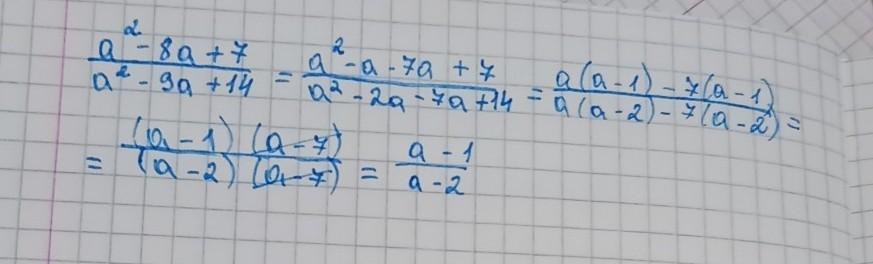 (a² - 8a + 7)/(a² - 9a + 14) = (a² - a - 7a + 7)/(a² - 2a - 7a + 14) = (a(a - 1) - 7(a - 1))/(a(a - 2) - 7(a - 2)) =
= ((a - 1)(a - 7))/((a - 2)(a - 7)) = (a - 1)/(a - 2)